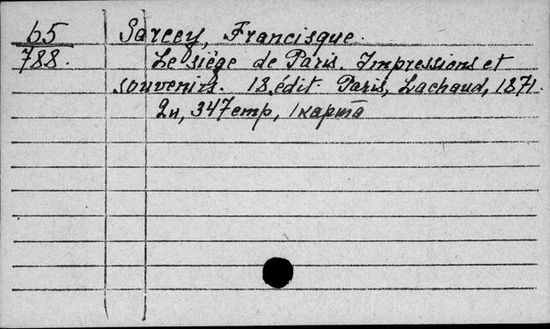 65 Sarcey, Francisque.
788. Le siége de Paris. Impressions et
souvenirs. 18 édit. Paris, Lachaud, 1871.
2н, 347 стр, 1 карта